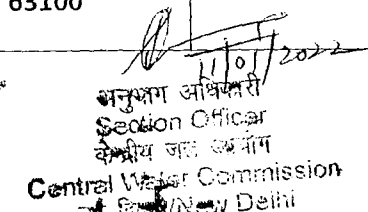 63100
11/01/2022
अनुभाग अधिकारी
Section Officer
केन्द्रीय जल आयोग
Central Water Commission
New Delhi